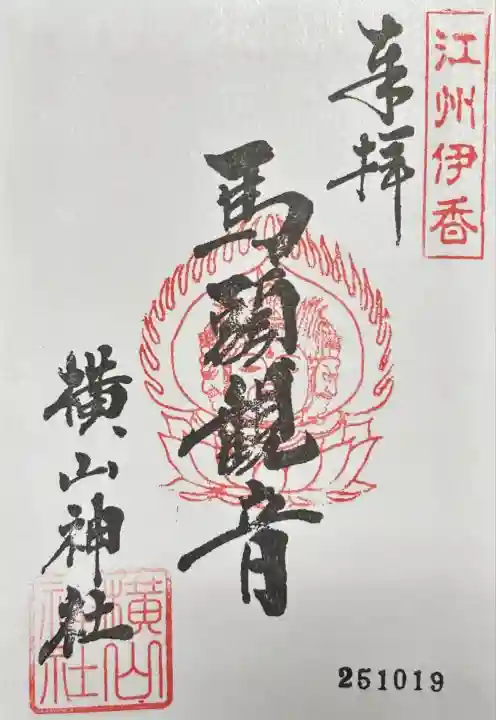 江州伊香
奉拝
馬頭観音
横山神社
横山
神社
251019